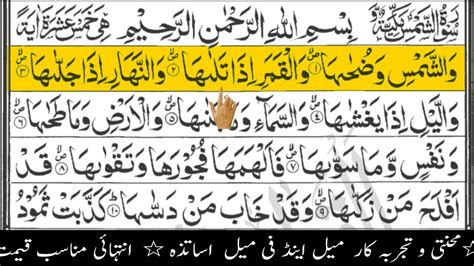 سُوْرَةُ الشَّمْسِ مَكِّيَّةٌ بِسْمِ اللّٰهِ الرَّحْمٰنِ الرَّحِيْمِ هِيَ خَمْسَ عَشْرَةَ اٰيَةً
وَالشَّمْسِ وَضُحٰىهَا ﴿۱﴾ وَالْقَمَرِ اِذَا تَلٰىهَا ﴿۲﴾ وَالنَّهَارِ اِذَا جَلّٰىهَا ﴿۳﴾
وَالَّيْلِ اِذَا يَغْشٰىهَا ﴿۴﴾ وَالسَّمَآءِ وَمَا بَنٰىهَا ﴿۵﴾ وَالْاَرْضِ وَمَا طَحٰىهَا ﴿۶﴾
وَنَفْسٍ وَّمَا سَوّٰىهَا ﴿۷﴾ فَاَلْهَمَهَا فُجُوْرَهَا وَتَقْوٰىهَا ﴿۸﴾ قَدْ
اَفْلَحَ مَنْ زَكّٰىهَا ﴿۹﴾ وَقَدْ خَابَ مَنْ دَسّٰىهَا ﴿۱۰﴾ كَذَّبَتْ ثَمُوْدُ
☆ محنتی و تجربہ کار میل اینڈ فی میل اساتذہ ☆ انتہائی مناسب قیمت